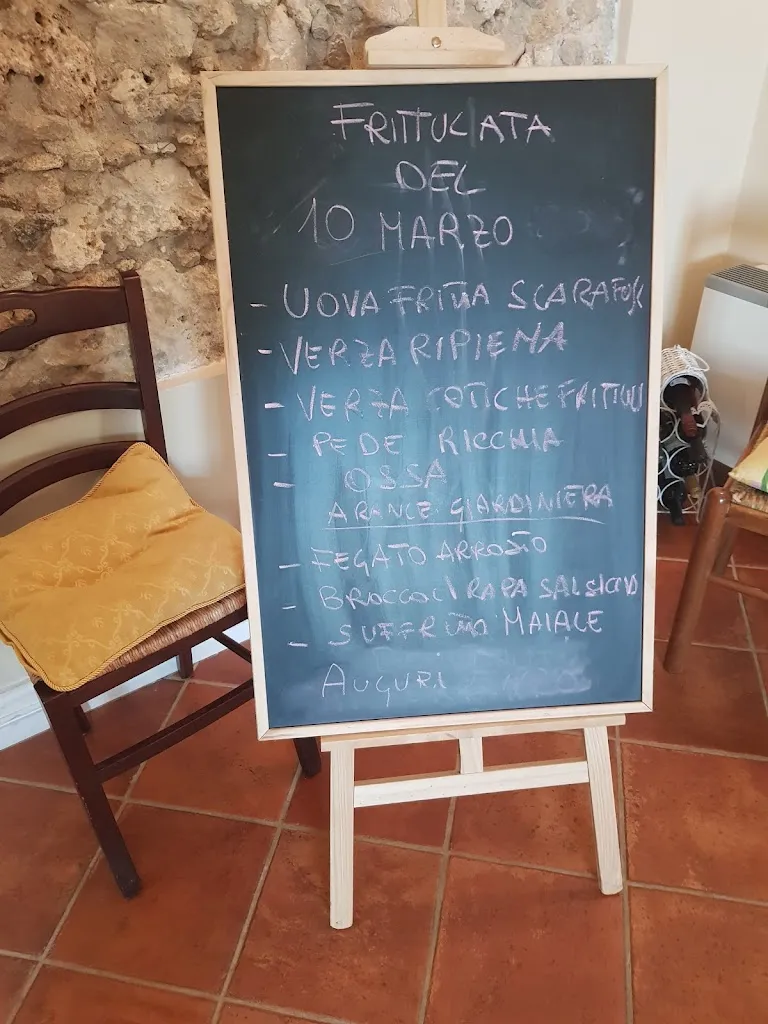 FRITTULIATA
DEL
10 MARZO
- UOVA FRITTA SCARAFOGL
- VERZA RIPIENA
- VERZA COTICHE FRITTULI
- PEDE RICCHIA
- OSSA
ARANCE GIARDINIERA
- FEGATO ARROSTO
- BROCCOLI RAPA SALSICCIA
- SUFFRITTO MAIALE
AUGURI